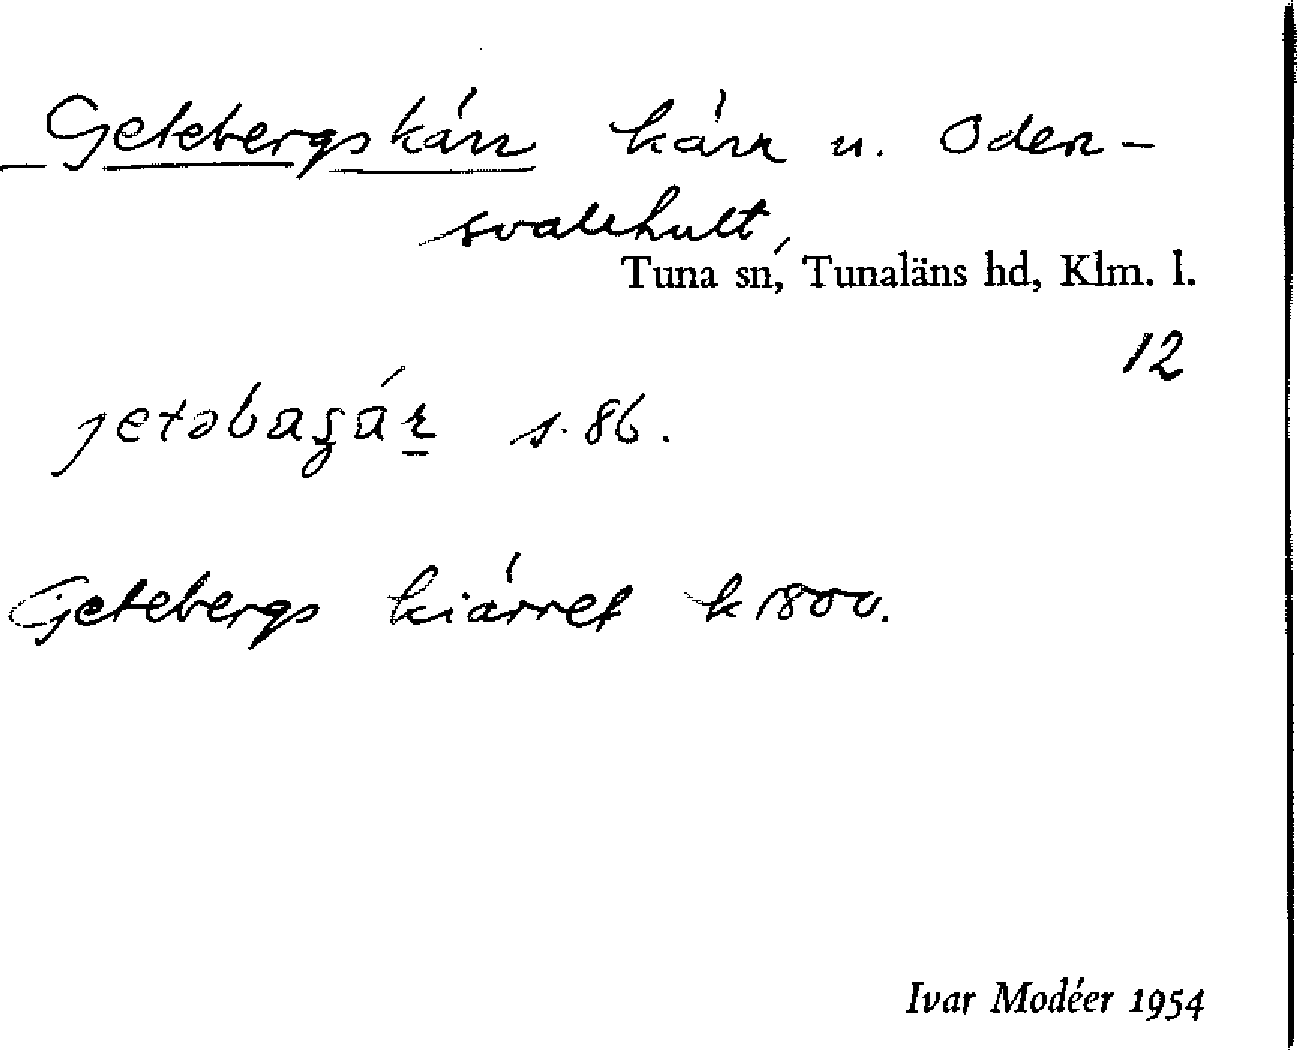 Getebergskärr kärr u. Oden-
svalehult,
Tuna sn, Tunaläns hd, Klm. l.
12
s. 86.
Getebergs kiärret k 1800.
Ivar Modéer 1954